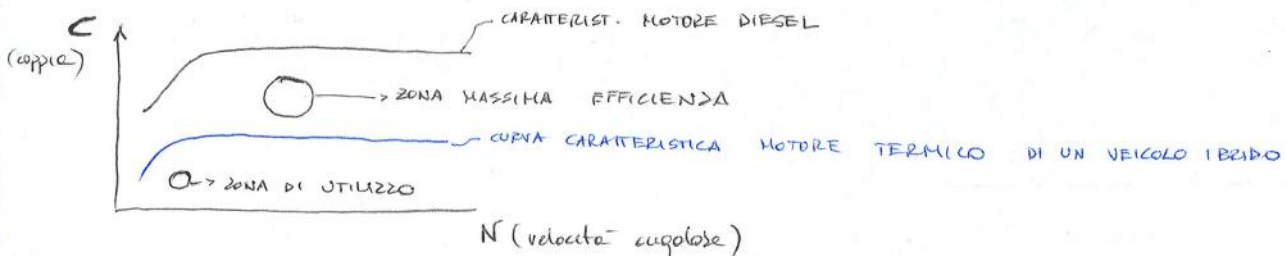 C
(coppia)
CARATTERIST. MOTORE DIESEL
ZONA MASSIMA EFFICIENZA
CURVA CARATTERISTICA MOTORE TERMICO DI UN VEICOLO IBRIDO
ZONA DI UTILIZZO
N (velocità angolare)